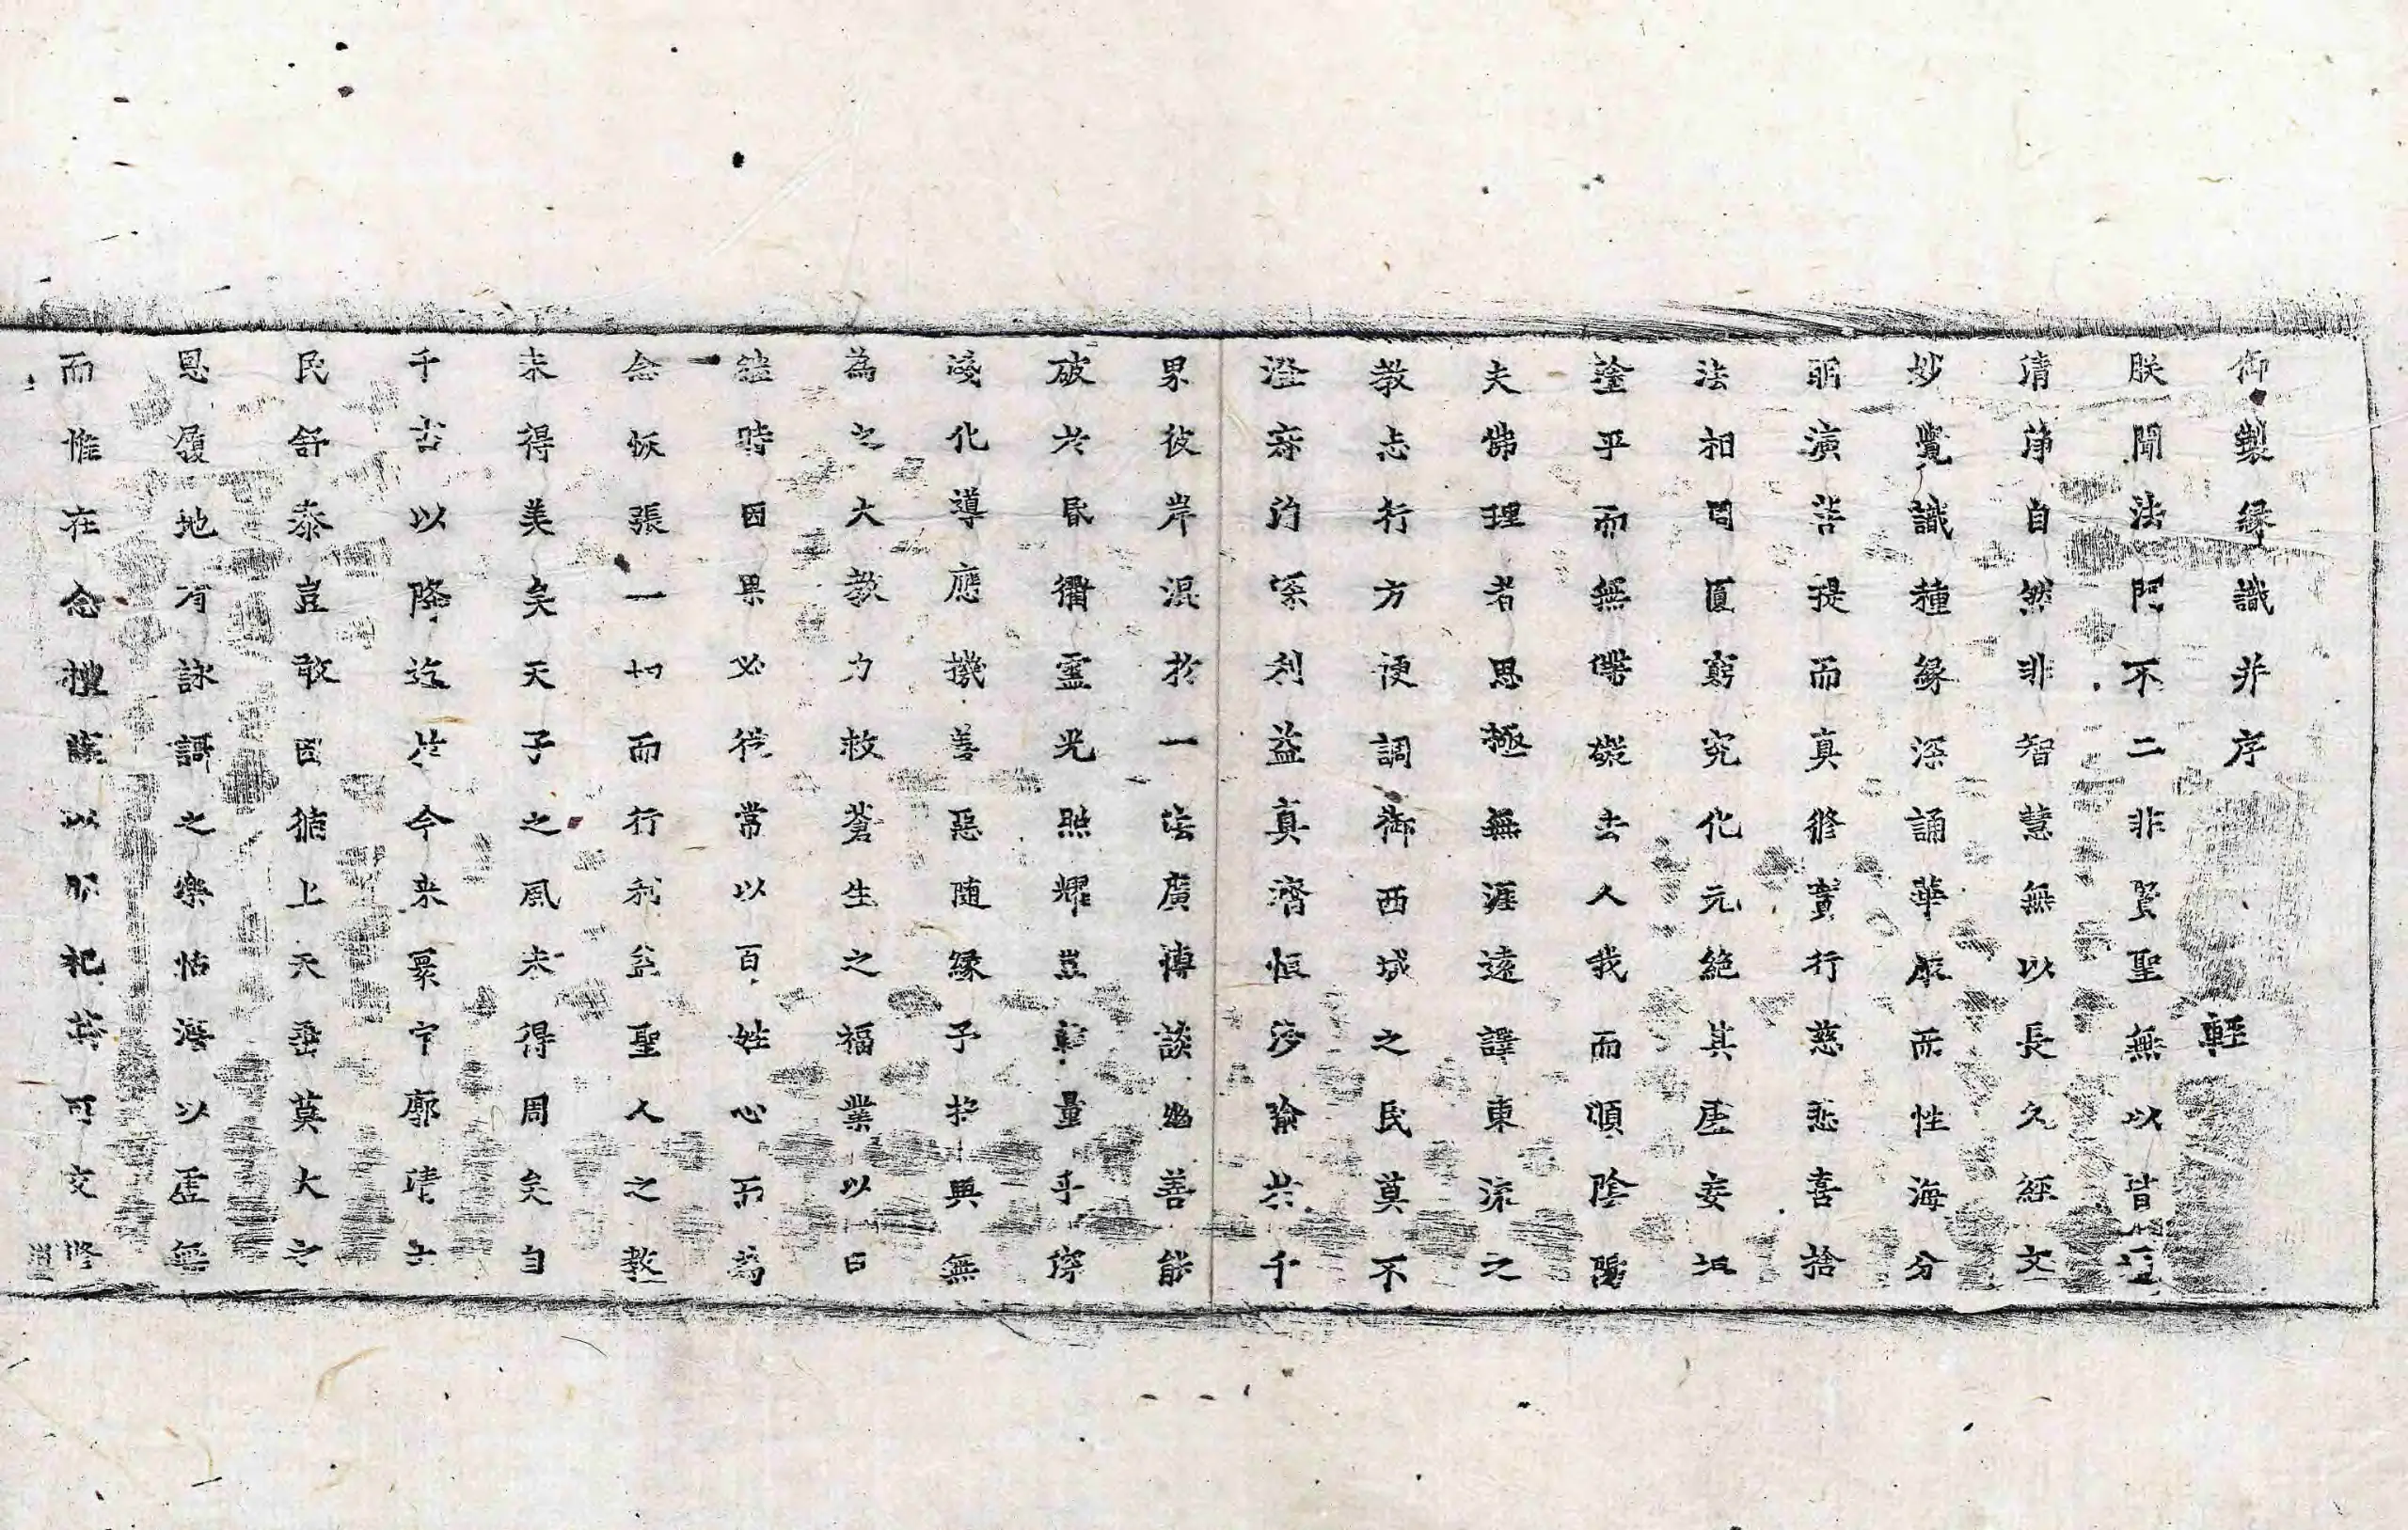 御製縁識并序 輕
朕聞法門不二非賢聖無以皆
清淨自然非智慧無以長久經文
妙覺識種緣深誦華嚴而性海分
明演菩提而真修實行慈悲喜捨
法相周圓窮究化元絶其虛妄坦
塗平而無㝵礙去人我而順陰陽
夫崇理者思極無涯遠譯東流之
教志行方便調御西域之民莫不
澄寂約深利益真濟恒沙喻於千
界彼岸混於一法廣博談幽善能
破於昏衢靈光照耀豈斟量乎深
淺化導應機善惡随縁予於興無
為之大教力救蒼生之福業以日
繼時因果必從常以百姓心而為
念恢張一切而行利益聖人之教
未得美矣天子之風未得周矣自
千古以降迄於今来寰宇廓清士
民舒泰豈敢因循上天垂莫大之
恩履地有詠謌之樂怙海以虛無
而惟在念禋 以 祀 可交修